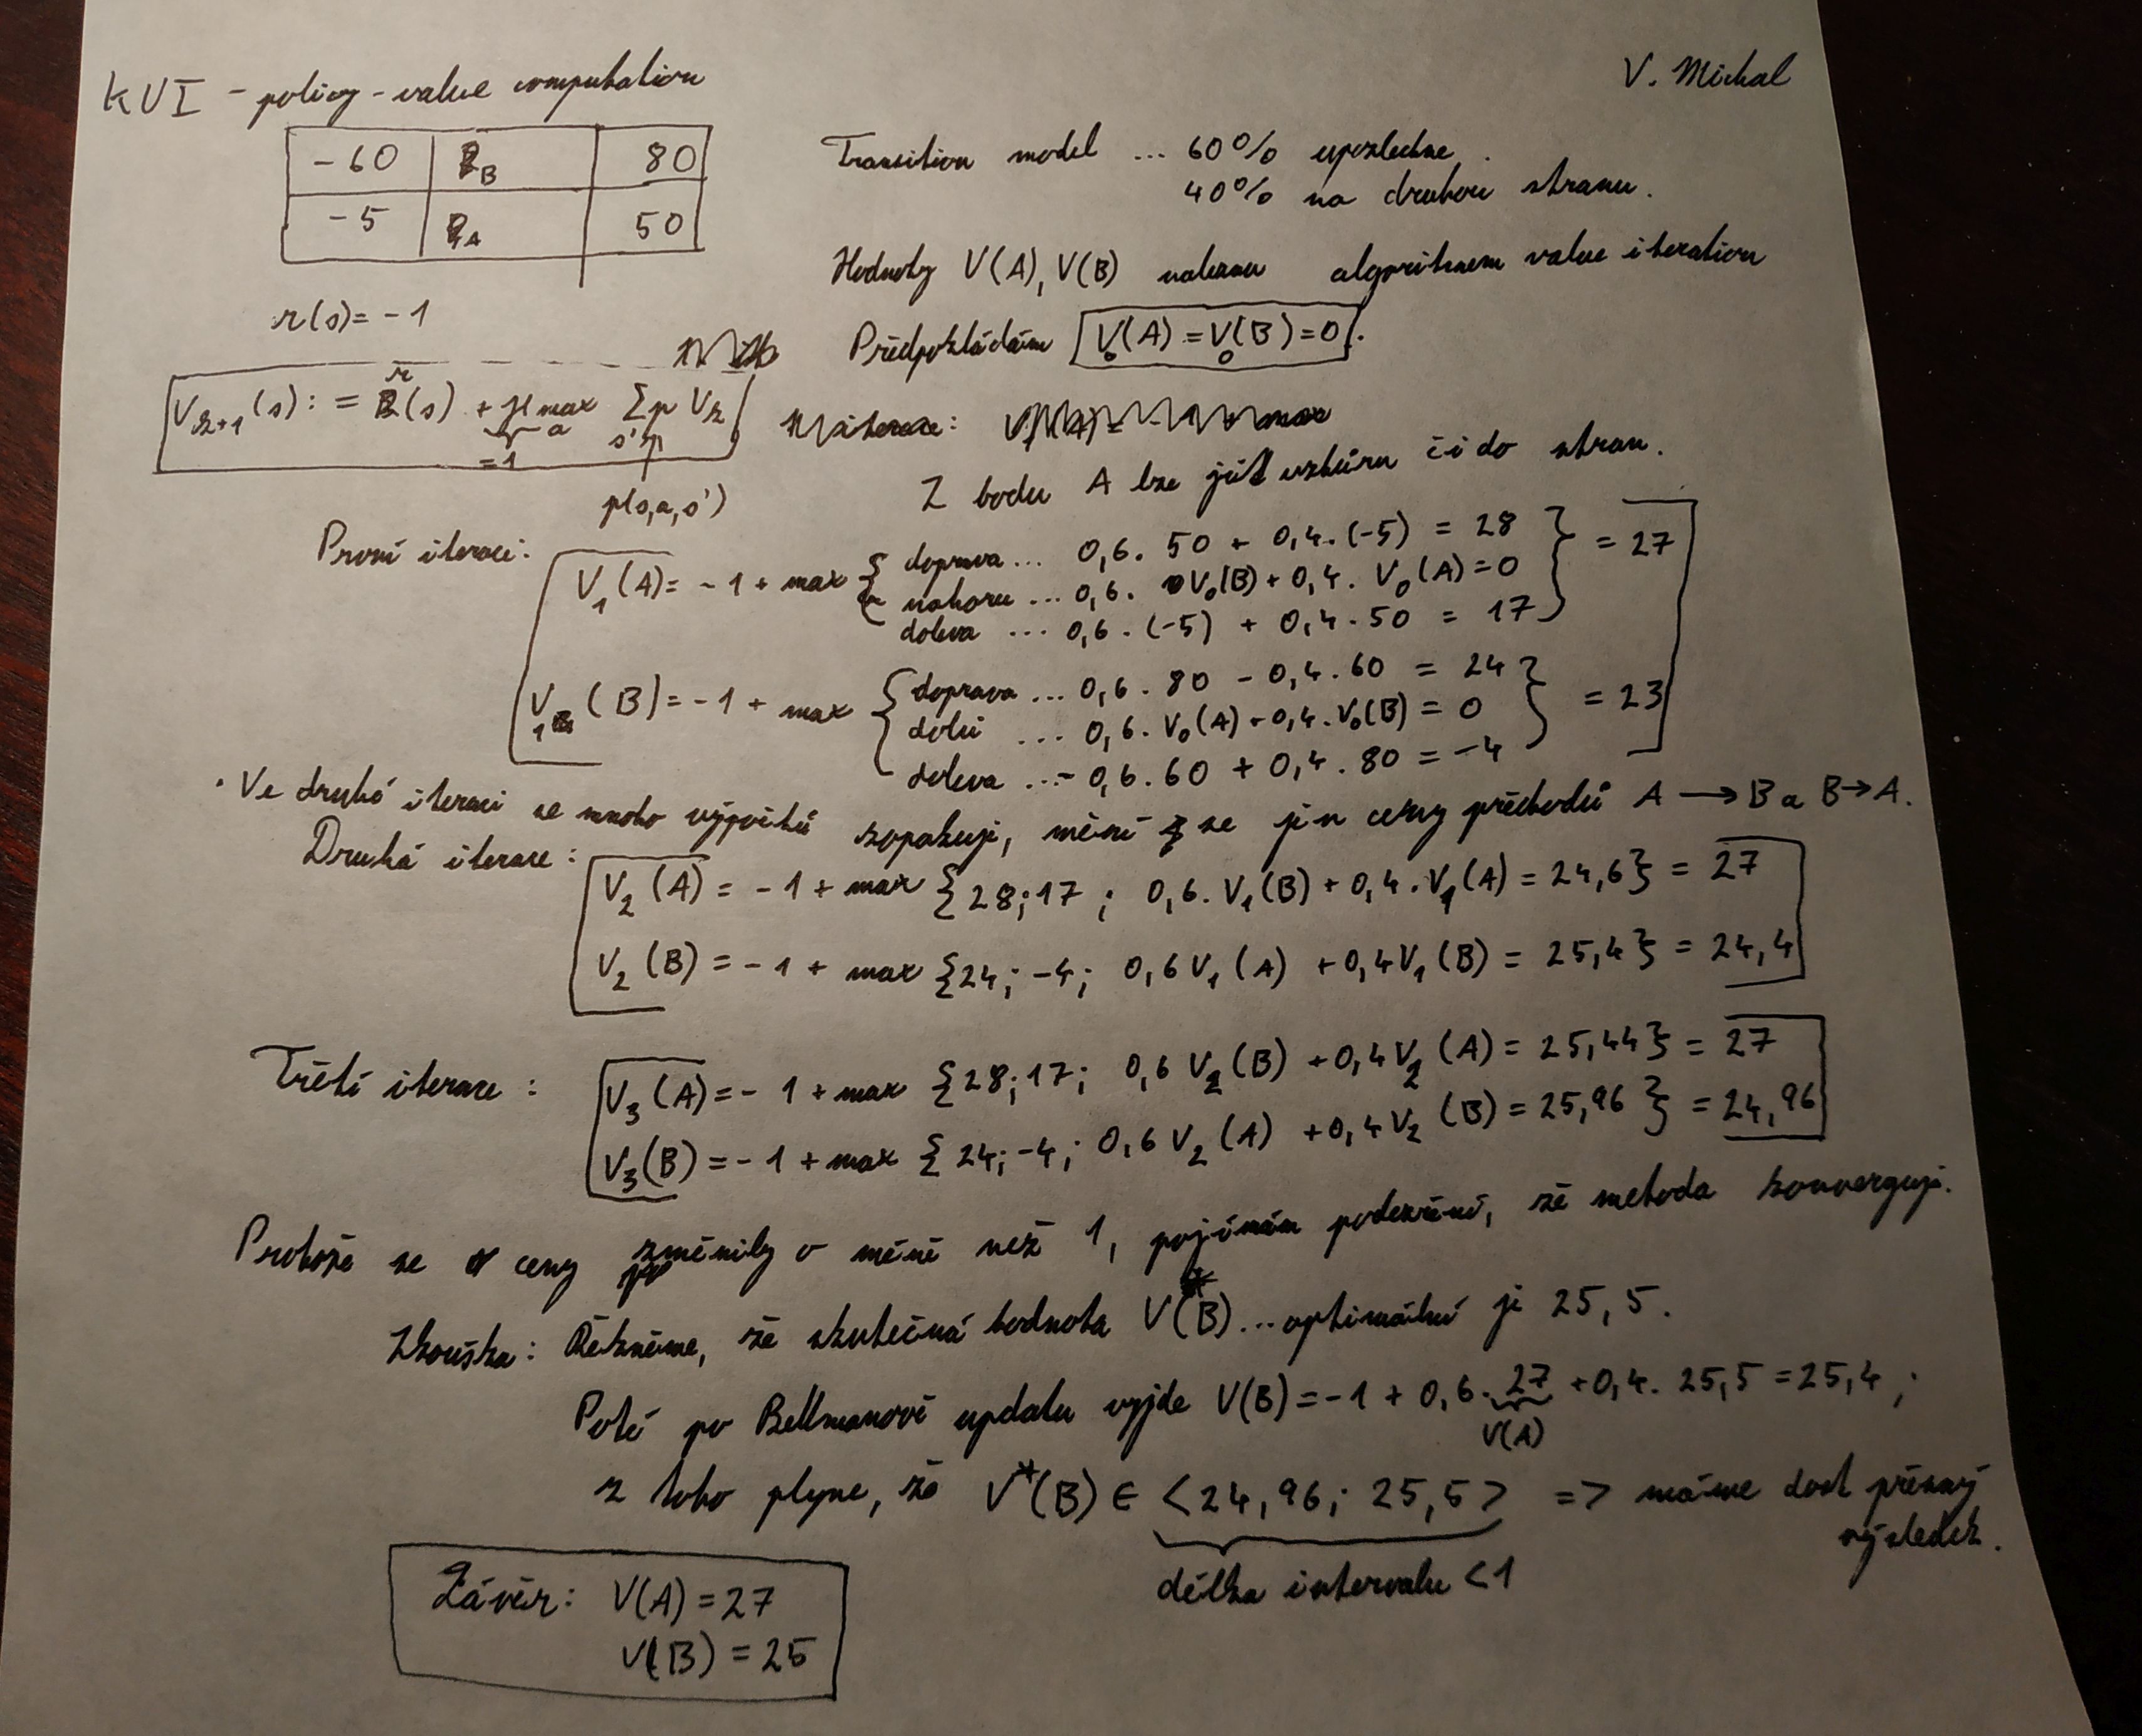 KUI - policy-value computation
V. Michal
-60 | B | 80
-5 | A | 50
r(s) = -1
Transition model ... 60% uposlechne.
40% na druhou stranu.
Hodnoty V(A), V(B) naleznu algoritmem value iteration
Předpokládám V₀(A) = V₀(B) = 0.
V_{k+1}(s) := r(s) + γ max_a Σ_{s'} p V_k
=1
p(s,a,s')
Z bodu A lze jít vzhůru či do stran.
První iteraci:
V₁(A) = -1 + max { doprava ... 0,6 . 50 + 0,4 . (-5) = 28
nahoru ... 0,6 . V₀(B) + 0,4 . V₀(A) = 0
doleva ... 0,6 . (-5) + 0,4 . 50 = 17 } = 27
V₁(B) = -1 + max { doprava ... 0,6 . 80 - 0,4 . 60 = 24
dolů ... 0,6 . V₀(A) + 0,4 . V₀(B) = 0
doleva ... - 0,6 . 60 + 0,4 . 80 = -4 } = 23
· Ve druhé iteraci se mnoho výpočtů zopakuje, mění se jen ceny přechodů A → B a B → A.
Druhá iterace:
V₂(A) = -1 + max {28; 17; 0,6 . V₁(B) + 0,4 . V₁(A) = 24,6} = 27
V₂(B) = -1 + max {24; -4; 0,6 V₁(A) + 0,4 V₁(B) = 25,4} = 24,4
Třetí iterace:
V₃(A) = -1 + max {28; 17; 0,6 V₂(B) + 0,4 V₂(A) = 25,44} = 27
V₃(B) = -1 + max {24; -4; 0,6 V₂(A) + 0,4 V₂(B) = 25,96} = 24,96
Protože se ceny změnily o méně než 1, pojímám podezření, že metoda konverguje.
Zkouška: Řekněme, že skutečná hodnota V(B) ... optimální je 25,5.
Poté po Bellmanově updatu vyjde V(B) = -1 + 0,6 . 27 + 0,4 . 25,5 = 25,4;
V(A)
z toho plyne, že V*(B) ∈ <24,96; 25,5> => máme dost přesný
výsledek.
délka intervalu < 1
Závěr: V(A) = 27
V(B) = 25